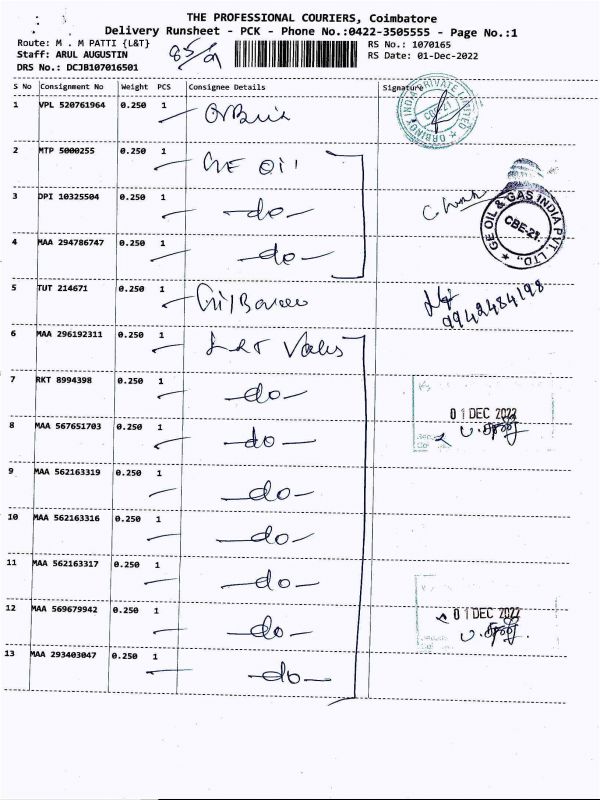 THE PROFESSIONAL COURIERS, Coimbatore
Delivery Runsheet - PCK - Phone No.:0422-3505555 - Page No.:1
Route: M . M PATTI {L&T}
RS No.: 1070165
Staff: ARUL AUGUSTIN
RS Date: 01-Dec-2022
DRS No.: DCJB107016501
S No Consignment No Weight PCS Consignee Details Signature
1 VPL 520761964 0.250 1
ORBINOX INDIA PRIVATE LIMITED
CBE-21
2 MTP 5000255 0.250 1 GE Oil
3 DPI 10325504 0.250 1 -do-
GE OIL & GAS INDIA PVT. LTD.,
CBE-21.
4 MAA 294786747 0.250 1 -do-
5 TUT 214671 0.250 1
9942484198
6 MAA 296192311 0.250 1 L&T Valves
7 RKT 8994398 0.250 1 -do-
01 DEC 2022
8 MAA 567651703 0.250 1 -do-
9 MAA 562163319 0.250 1 -do-
10 MAA 562163316 0.250 1 -do-
11 MAA 562163317 0.250 1 -do-
12 MAA 569679942 0.250 1 -do-
01 DEC 2022
13 MAA 293403047 0.250 1 -do-